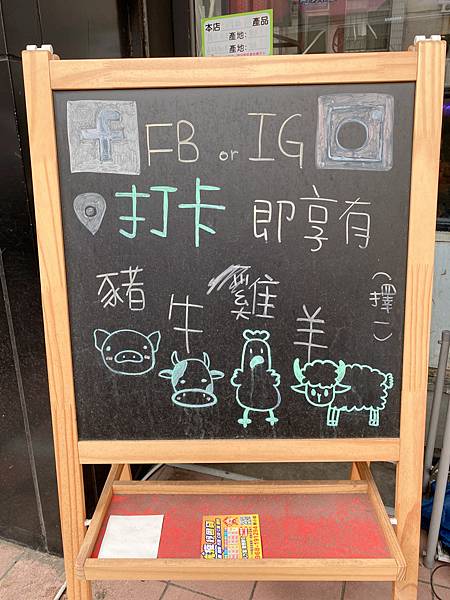 本店 產品
產地:
產地:
f FB or IG
打卡 即享有
豬 牛 雞 羊 (擇一)